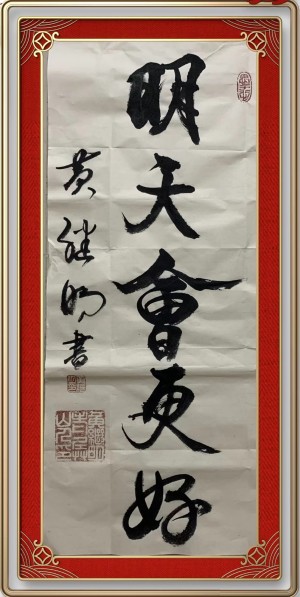 明天會更好
黄继明書